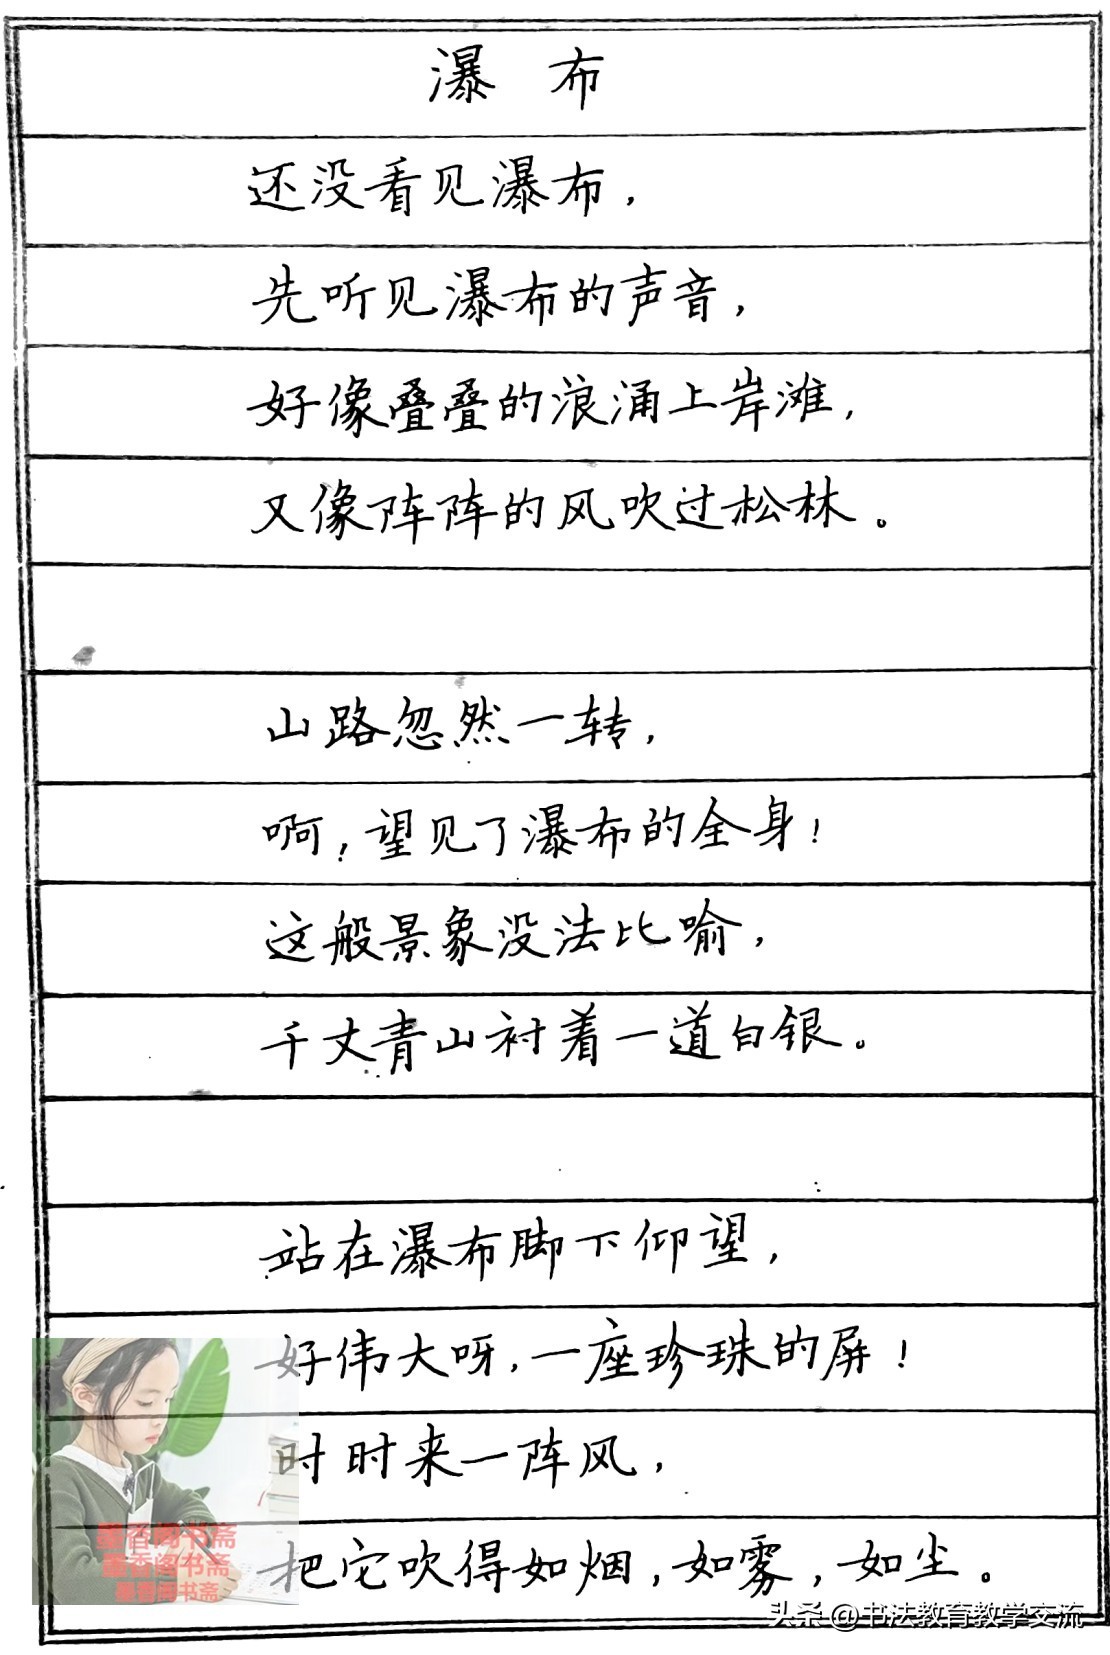 瀑 布
还没看见瀑布，
先听见瀑布的声音，
好像叠叠的浪涌上岸滩，
又像阵阵的风吹过松林。
山路忽然一转，
啊！望见了瀑布的全身！
这般景象没法比喻，
千丈青山衬着一道白银。
站在瀑布脚下仰望，
好伟大呀，一座珍珠的屏！
时时来一阵风，
把它吹得如烟，如雾，如尘。
墨香阁书斋
墨香阁书斋
墨香阁书斋
头条 @书法教育教学交流